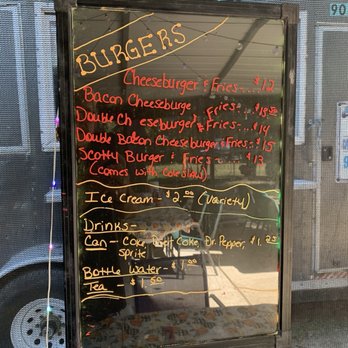 90
BURGERS
Cheeseburger & Fries... $12
Bacon Cheeseburge Fries... $13.50
Double Ch eseburger & Fries... $14
Double Bacon Cheeseburger Fries... $15
Scotty Burger & Fries ... $13
(comes with coleslaw)
Ice Cream - $2.00 (variety)
Drinks-
Can - Coke, Diet Coke, Dr. Pepper, $1.25
Sprite
Bottle Water - $1.00
Tea - $1.50